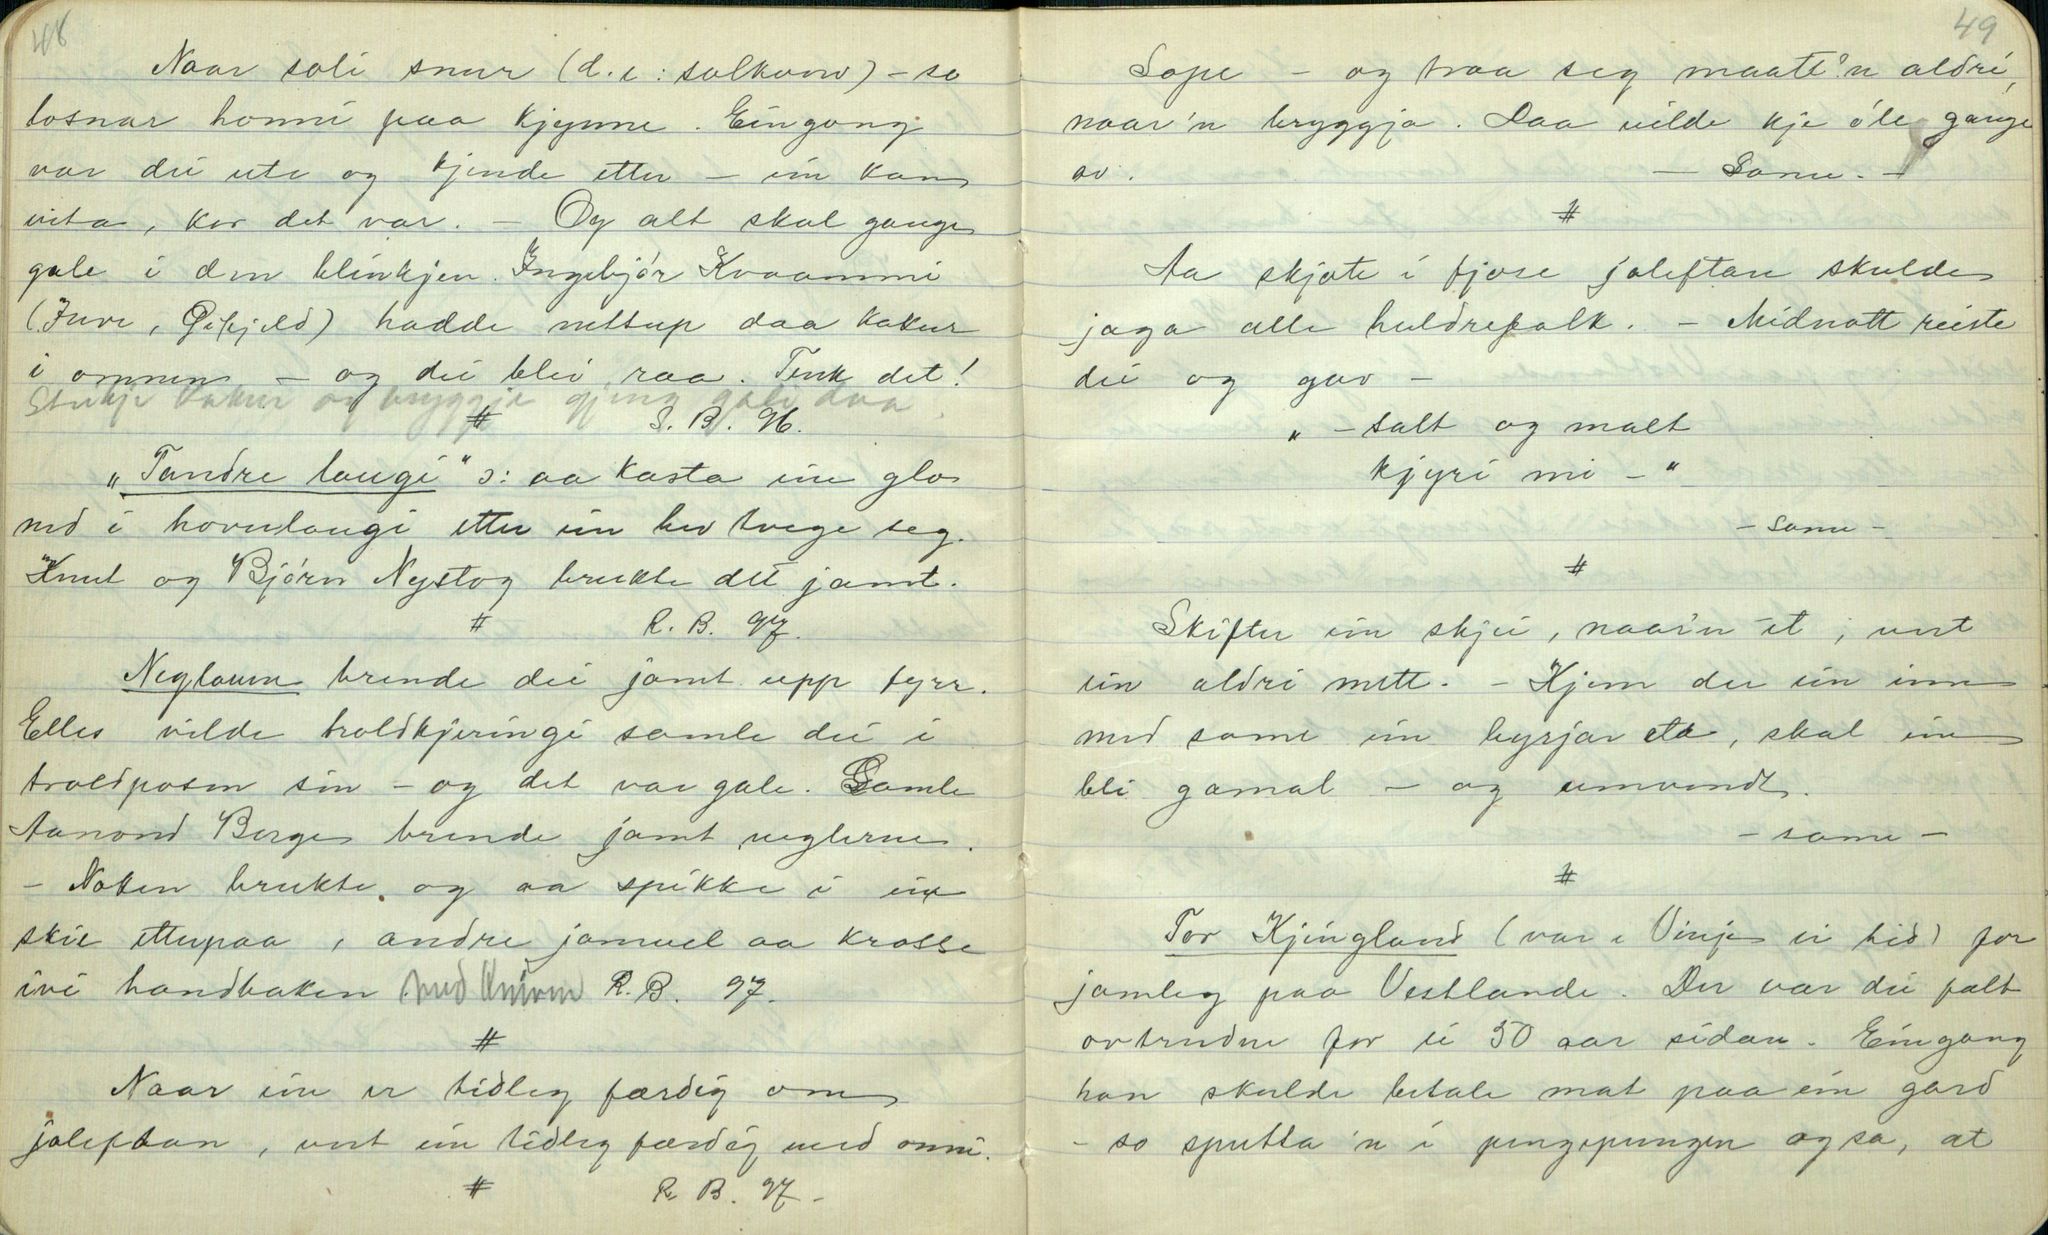 48
Naar soli snur (d. e: solkverv) – so
losnar honni paa kjynne. Eingong
var dei ute og kjende etter – ein kan
vita, kor det var. – Og alt skal gange
gale i den blinkjen. Ingebjór Kvaammi
(Juve, Øifjeld) hadde nettup daa kakur
i omnen – og dei blei raa. Tenk det!
Steikje kakur og bryggje gjeng gale daa.
# S. B. 96.
"Tandre laugi" ɔ: aa kasta ein glo
ned i hovulaugi etter ein hev tvege seg.
Knut og Bjórn Nystog brukte det jamt.
# R. B. 97.
Neglaun brende dei jamt upp fyrr.
Elles vilde troldkjeringi samle dei i
troldposen sin – og det var gale. Gamle
Aanond Berge brende jamt neglerne.
– Noken brukte og aa spikke i ein
skie etterpaa, andre jamvel aa krosse
ivi handbaken med kniven R. B. 97.
#
Naar ein er tidleg færdig om
joleftan, vert ein tidleg færdig med onni.
# R. B. 97.–
49
Sope – og traa seg maatt'n aldri,
naar'n bryggja. Daa vilde kje óle gange
av. – Same. –
#
Aa skjote i fjose joleftan skulde
jaga alle huldrefolk. – Midnott reiste
dei og gav –
" – salt og malt
kjyri mi – "
– same –
#
Skifter ein skjei, naar'n et, vert
ein aldri mett. – Kjem der ein inn
med same ein byrjar eta, skal ein
bli gamal – og umvendt.
– same –
#
Tor Kjingland (var i Vinje ei tid) for
jamleg paa Vestlande. Der var dei fælt
ovtrudne for ei 50 aar sidan. Eingong
han skulde betale mat paa ein gard
– so sputta 'n i pengepungen og sa, at